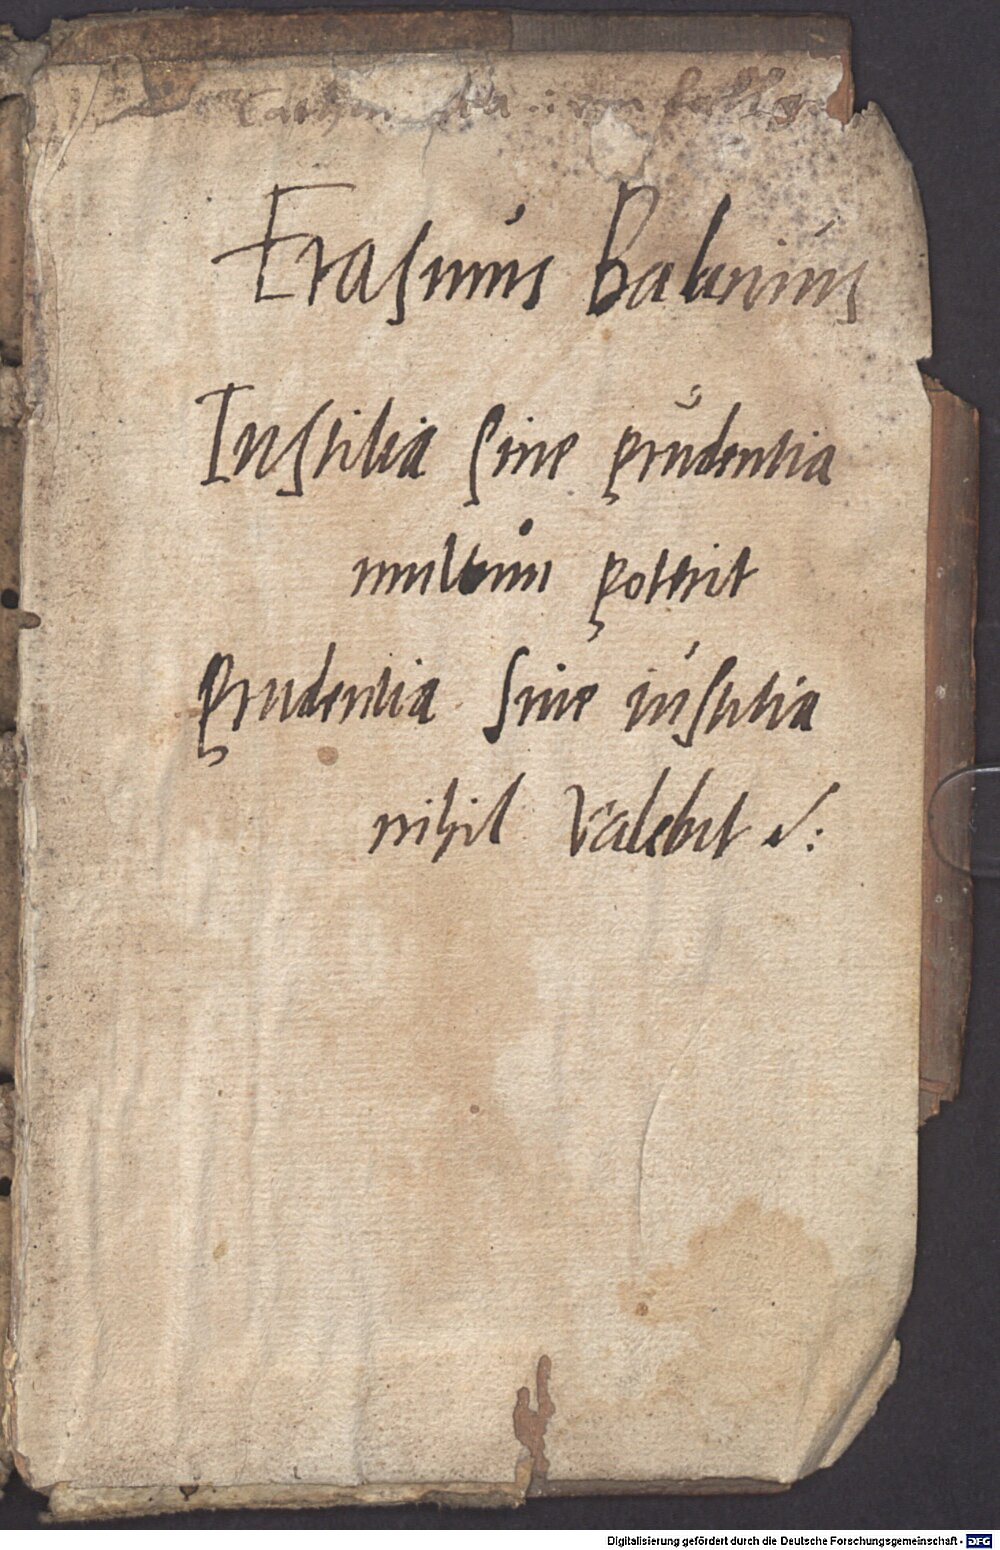 Erasmus
Iustitia sine prudentia
multum poterit
Prudentia sine iustitia
nihil valebit
Digitalisierung gefördert durch die Deutsche Forschungsgemeinschaft - DFG